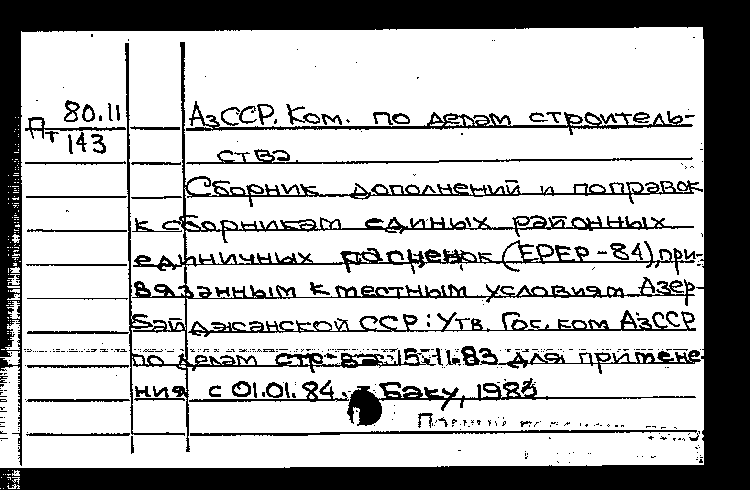 80.11
Пт 143
АзССР. Ком. по делам строитель-
ства.
Сборник дополнений и поправок
к сборникам единых районных
единичных расценок (ЕРЕР-84), при-
вязанным к местным условиям Азер-
байджанской ССР: Утв. Гос. ком АзССР
по делам стр-ва 15.11.83 для примене-
ния с 01.01.84. - Баку, 1983.